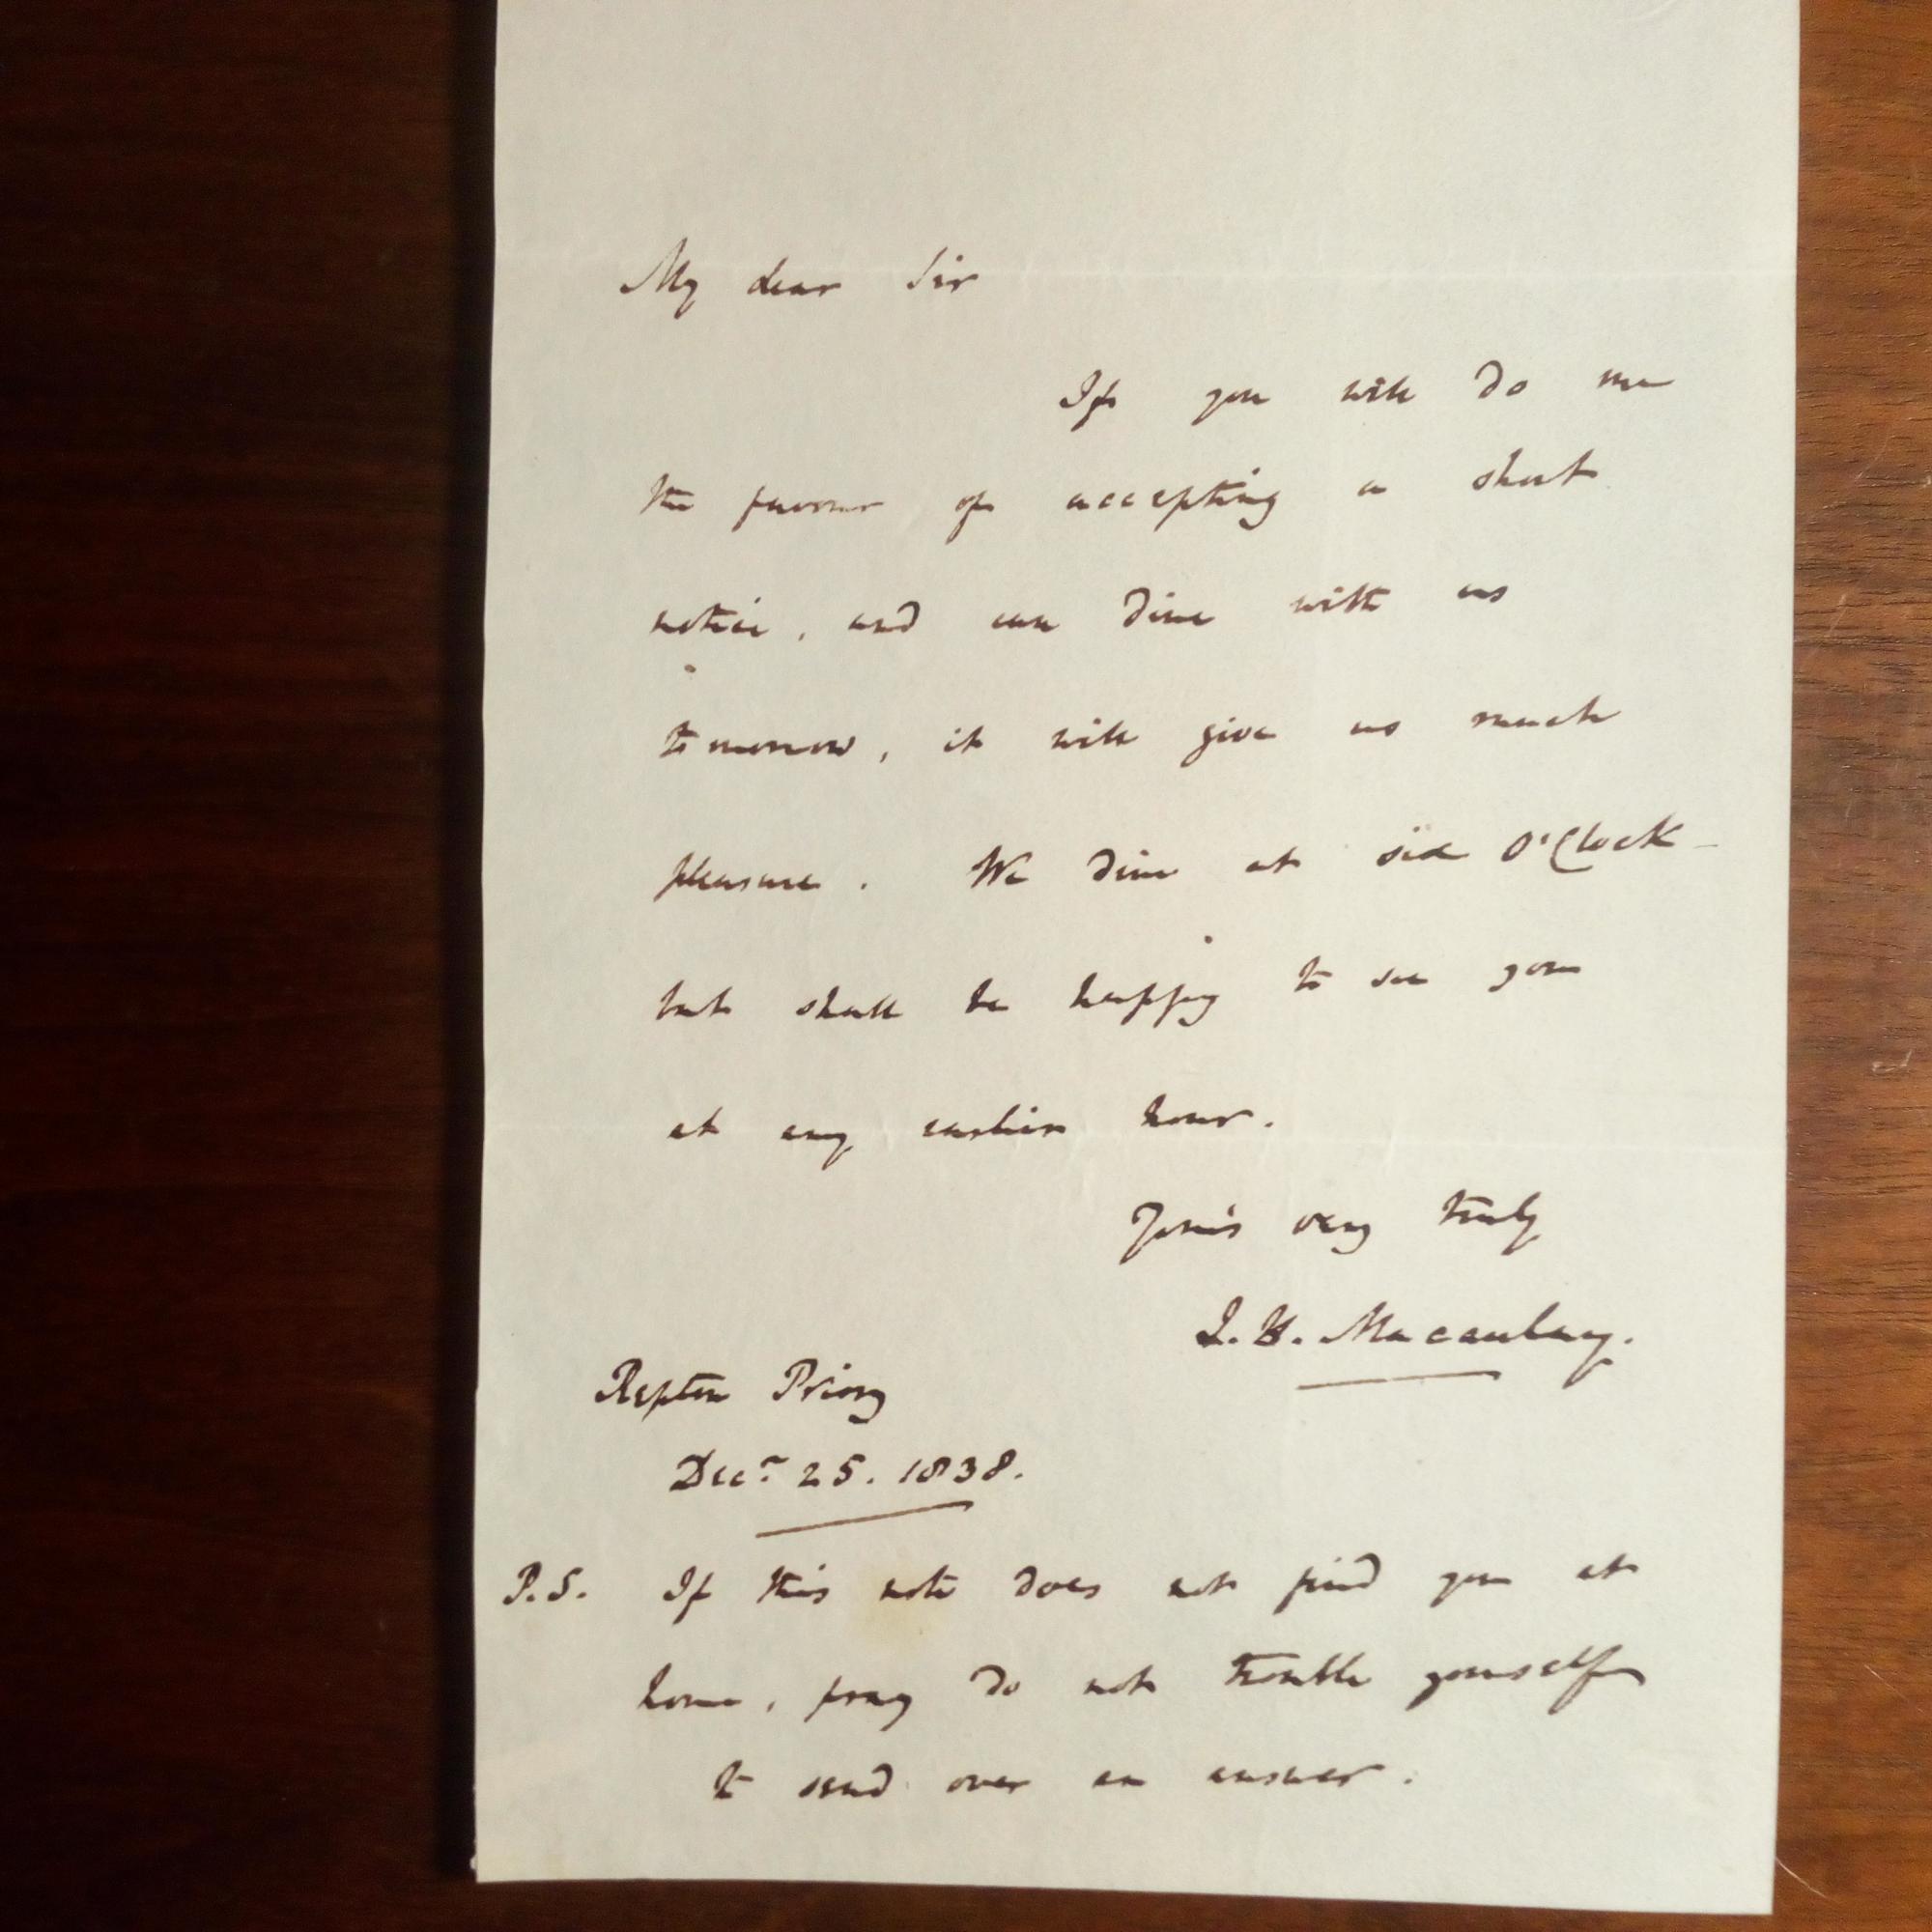 My dear Sir
If you will do me
the favour of accepting a short
notice, and can dine with us
tomorrow, it will give us much
pleasure. We dine at six O'Clock –
but shall be happy to see you
at any earlier hour.
Your's very truly
J. H. Macaulay.
Repton Priory
Decr 25. 1838.
P.S. If this note does not find you at
home, pray do not trouble yourself
to send over an answer.